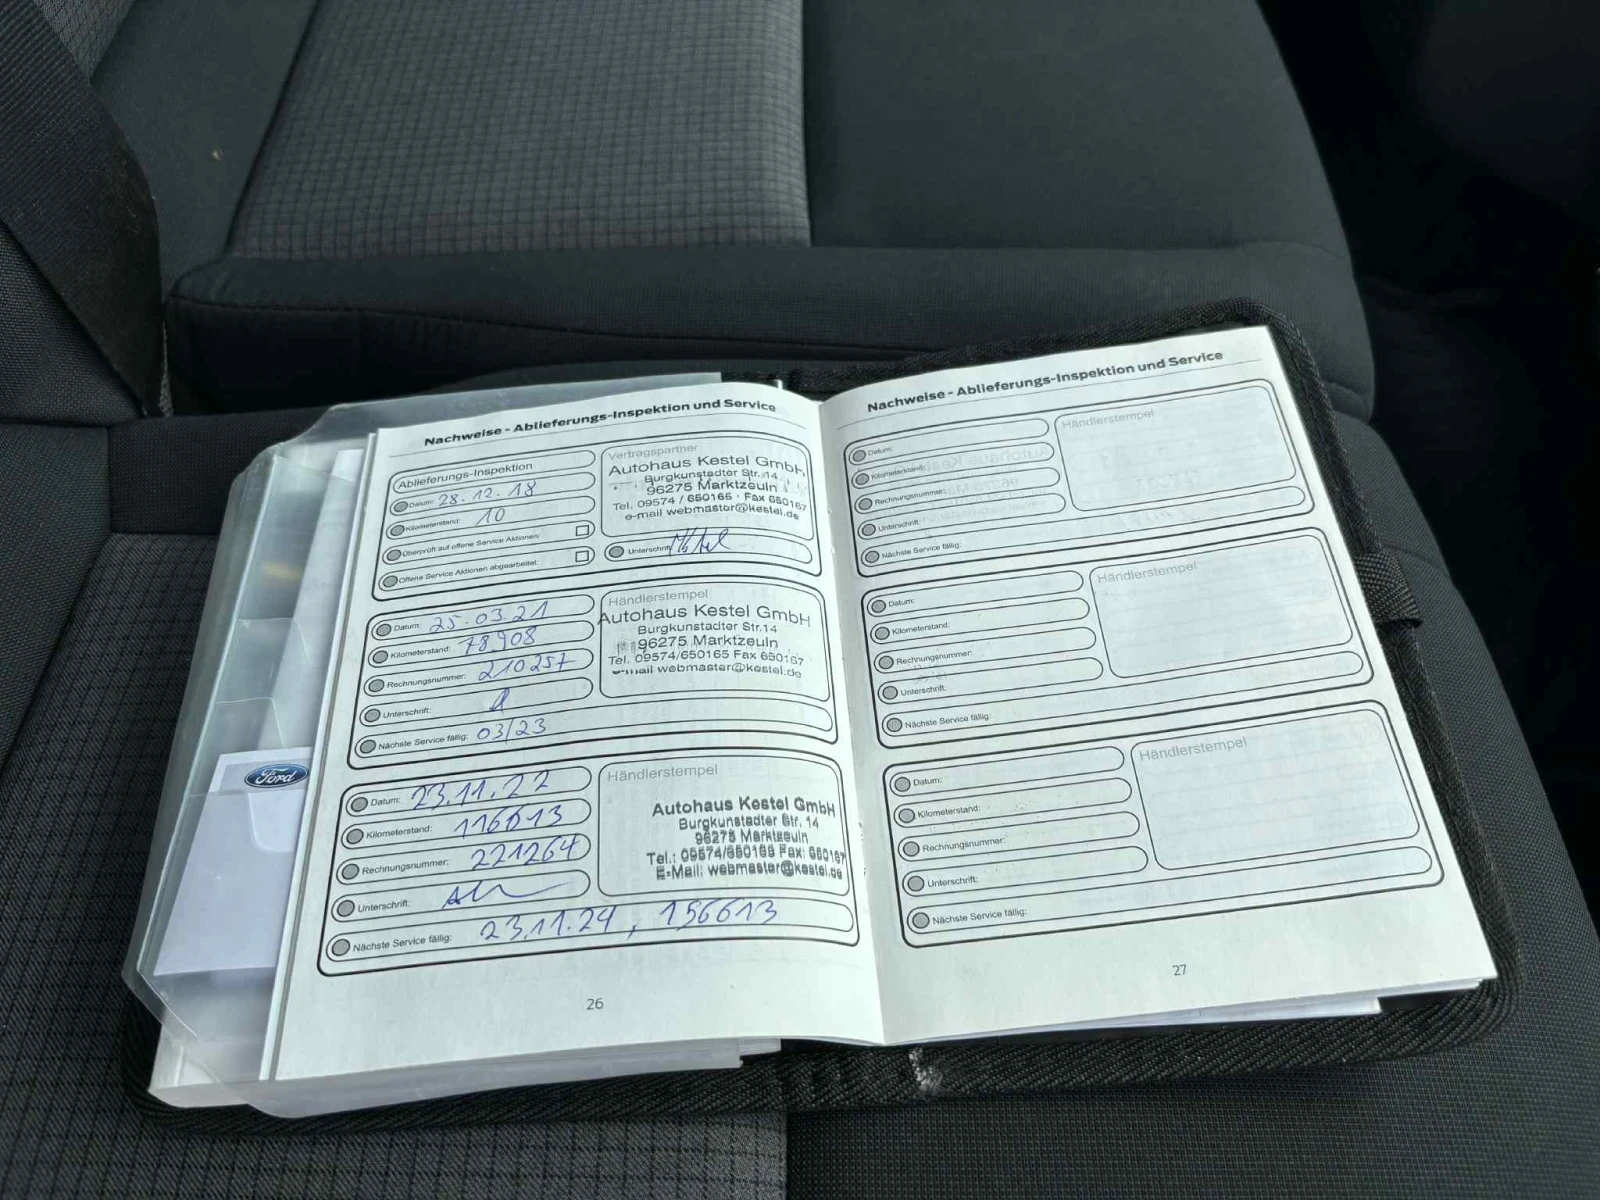 Nachweise - Ablieferungs-Inspektion und Service
Ablieferungs-Inspektion
Datum: 28.12.18
Kilometerstand: 10
Überprüft auf offene Service Aktionen:
Offene Service Aktionen abgearbeitet:
Vertragspartner
Autohaus Kestel GmbH
Burgkunstadter Str. 14
96275 Marktzeuln
Tel. 09574 / 650165 · Fax 650167
e-mail webmaster@kestel.de
Unterschrift:
Datum: 25.03.21
Kilometerstand: 78908
Rechnungsnummer: 210257
Unterschrift:
Nächste Service fällig: 03/23
Händlerstempel
Autohaus Kestel GmbH
Burgkunstadter Str.14
96275 Marktzeuln
Tel. 09574/650165 Fax 650167
e-mail webmaster@kestel.de
Datum: 23.11.22
Kilometerstand: 116613
Rechnungsnummer: 221264
Unterschrift:
Nächste Service fällig: 23.11.24, 156613
Händlerstempel
Autohaus Kestel GmbH
Burgkunstadter Str. 14
96275 Marktzeuln
Tel.: 09574/650165 Fax: 650167
E-Mail: webmaster@kestel.de
26
Ford
Nachweise - Ablieferungs-Inspektion und Service
Datum:
Kilometerstand:
Rechnungsnummer:
Unterschrift:
Nächste Service fällig:
Händlerstempel
Datum:
Kilometerstand:
Rechnungsnummer:
Unterschrift:
Nächste Service fällig:
Händlerstempel
Datum:
Kilometerstand:
Rechnungsnummer:
Unterschrift:
Nächste Service fällig:
Händlerstempel
27